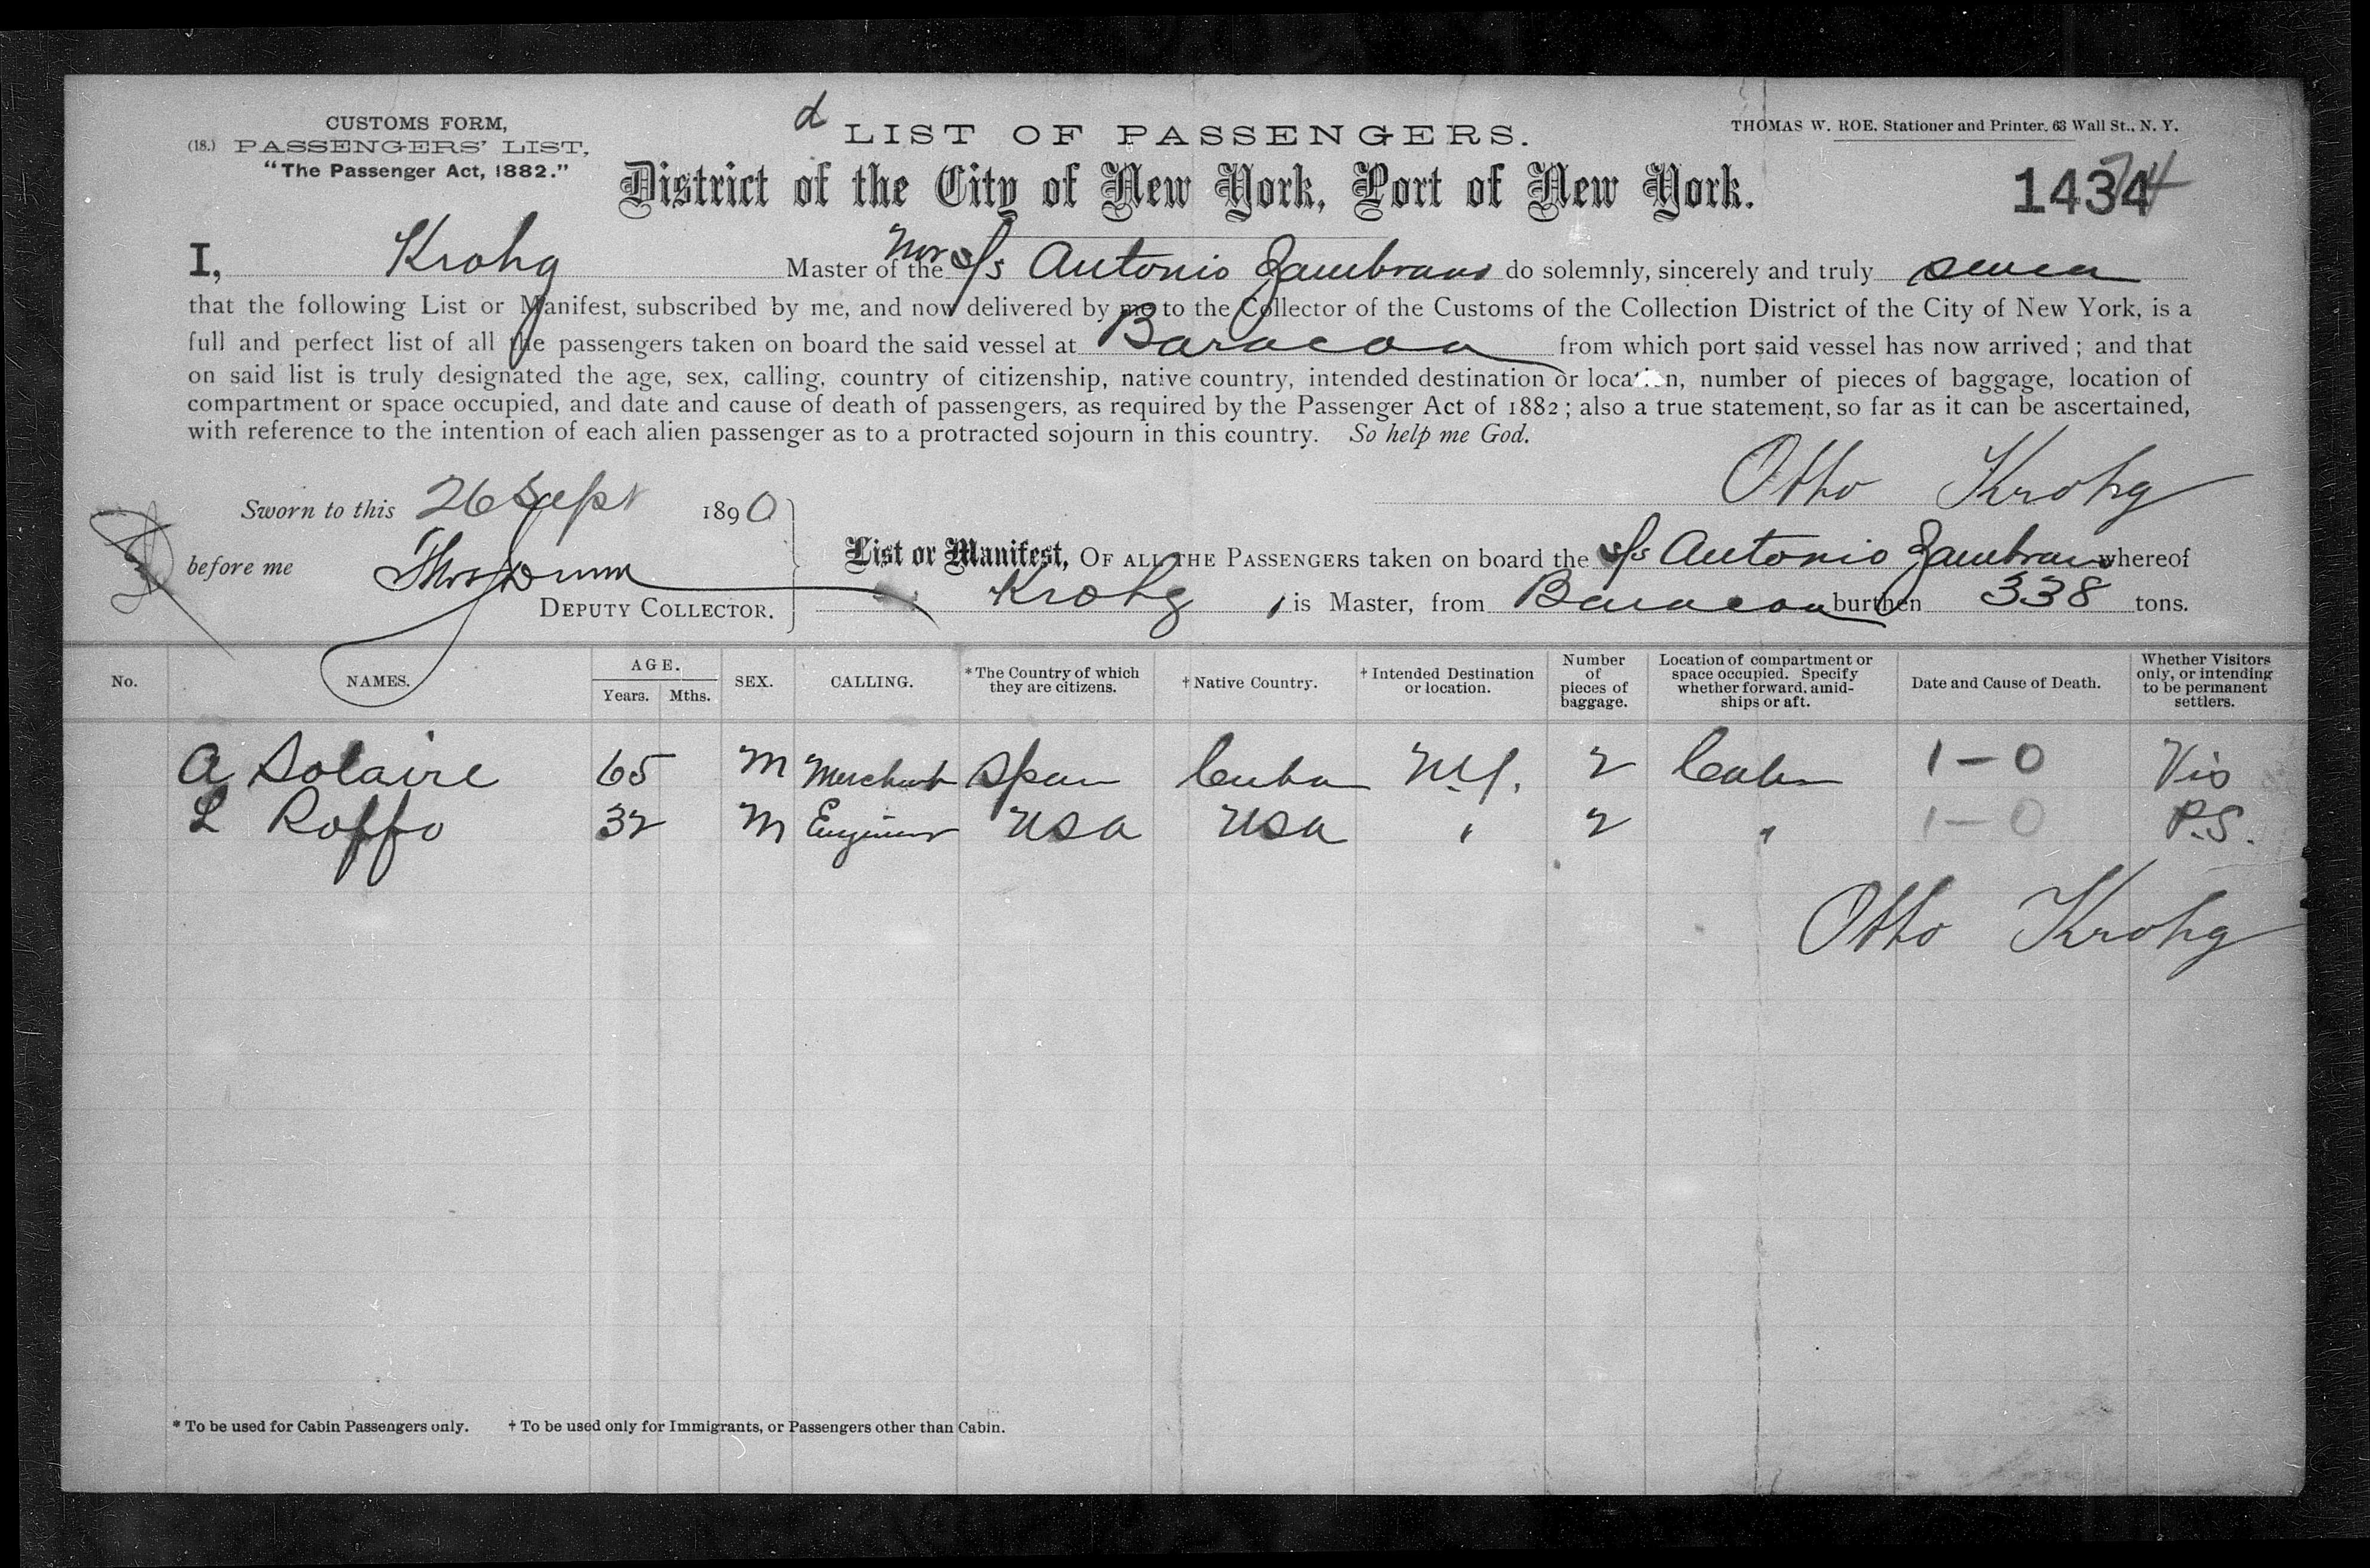 CUSTOMS FORM,
(18.) PASSENGERS' LIST,
"The Passenger Act, 1882."
d LIST OF PASSENGERS.
THOMAS W. ROE. Stationer and Printer, 63 Wall St., N. Y.
District of the City of New York, Port of New York.
1434
I, Krohg Master of the Nor s/s Antonio Zambrano do solemnly, sincerely and truly swear
that the following List or Manifest, subscribed by me, and now delivered by me to the Collector of the Customs of the Collection District of the City of New York, is a
full and perfect list of all the passengers taken on board the said vessel at Baracoa from which port said vessel has now arrived; and that
on said list is truly designated the age, sex, calling, country of citizenship, native country, intended destination or location, number of pieces of baggage, location of
compartment or space occupied, and date and cause of death of passengers, as required by the Passenger Act of 1882; also a true statement, so far as it can be ascertained,
with reference to the intention of each alien passenger as to a protracted sojourn in this country. So help me God.
Otto Krohg
Sworn to this 26 Sept 1890
before me
DEPUTY COLLECTOR.
List or Manifest, OF ALL THE PASSENGERS taken on board the s/s Antonio Zambrano whereof
Krohg, is Master, from Baracoa burthen 338 tons.
No. NAMES. AGE. Years. Mths. SEX. CALLING. *The Country of which they are citizens. †Native Country. †Intended Destination or location. Number of pieces of baggage. Location of compartment or space occupied. Specify whether forward, amidships or aft. Date and Cause of Death. Whether Visitors only, or intending to be permanent settlers.
A Solaire 65 M Merchant Spain Cuba N.Y. 2 Cabin 1-0 Vis
L Roffo 32 M Engineer USA USA " 2 " 1-0 P.S.
Otto Krohg
* To be used for Cabin Passengers only. † To be used only for Immigrants, or Passengers other than Cabin.